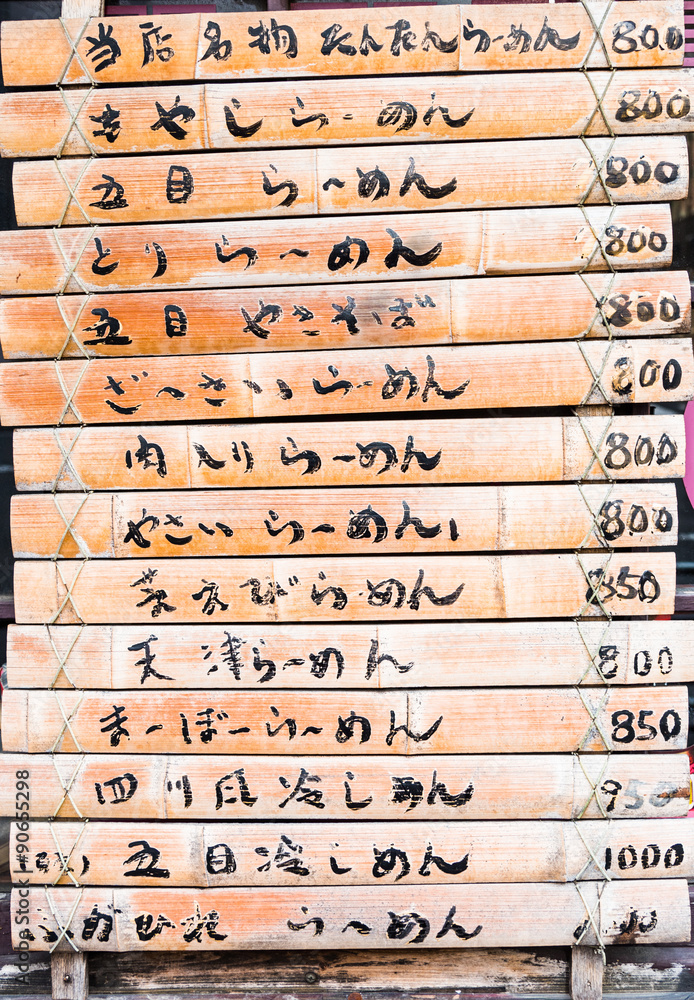 当店名物 たんたんらーめん 800
もやしらーめん 800
五目 らーめん 800
とり らーめん 800
五目 やきそば 800
ざーさい らーめん 800
肉入り らーめん 800
やさい らーめん 800
えびらーめん 850
天津らーめん 800
まーぼーらーめん 850
四川風冷しめん 950
五目冷しめん 1000
ふかひれ らーめん
Adobe Stock | #90655298
Adobe Stock